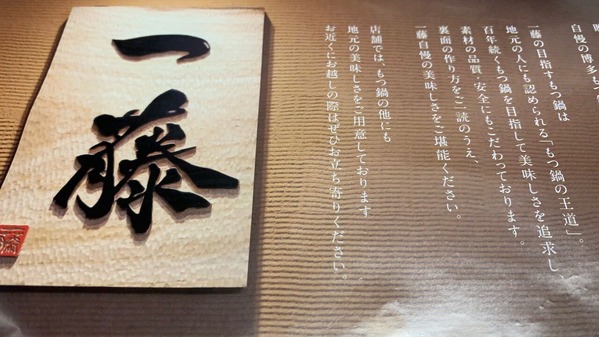 自慢の博多もつ
一藤の目指すもつ鍋は
地元の人にも認められる「もつ鍋の王道」。
百年続くもつ鍋を目指して美味しさを追求し、
素材の品質・安全にもこだわっております。
裏面の作り方をご一読のうえ、
一藤自慢の美味しさをご堪能ください。
店舗では、もつ鍋の他にも
地元の美味しさをご用意しております
お近くにお越しの際はぜひお立ち寄りください。
一藤